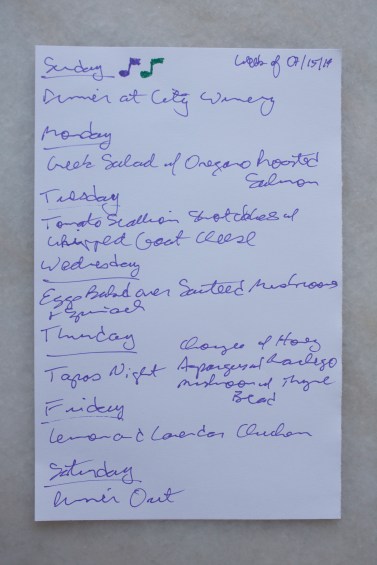 Sunday
Week of 04/15/19
Dinner at City Winery
Monday
Greek Salad w/ Oregano Roasted
Salmon
Tuesday
Tomato Scallion Shortcakes w/
Whipped Goat Cheese
Wednesday
Eggs Baked over Sauteed Mushrooms
+ Spinach
Thursday
Tapas Night
w/ Honey
Asparagus w/
Mushroom w/ Thyme
Bread
Friday
Lemon and Lavender Chicken
Saturday
Dinner Out